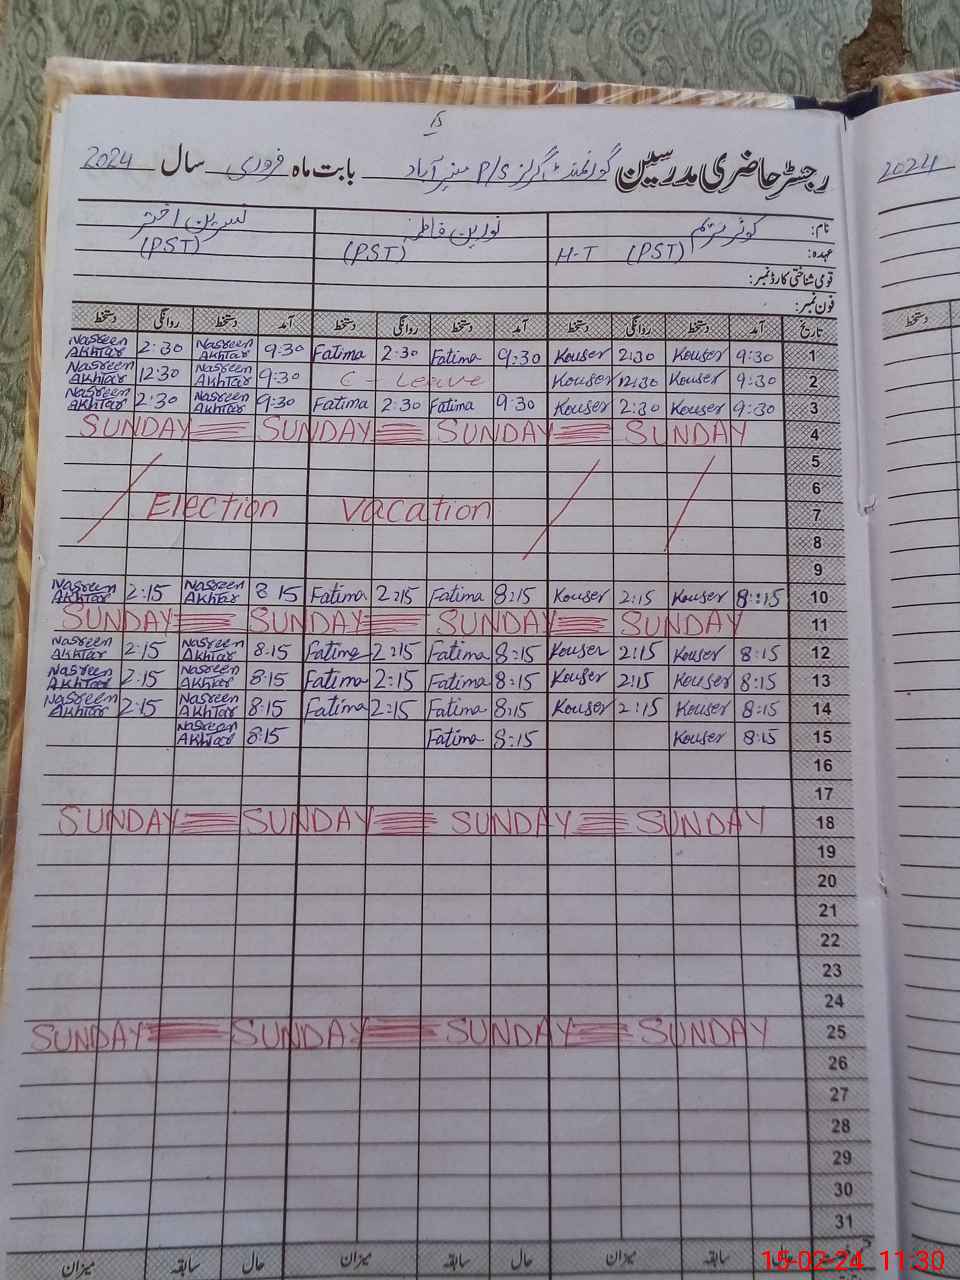 15
رجسٹر حاضری مدرسین گورنمنٹ گرلز P/S آباد بابت ماہ فروری سال 2024
2024
نام: کوثر نورین فاطمہ نسرین اختر
عہدہ: H-T (PST) (PST) (PST)
قومی شناختی کارڈ نمبر:
فون نمبر:
تاریخ آمد دستخط روانگی دستخط آمد دستخط روانگی دستخط آمد دستخط روانگی دستخط
دستخط
Nasreen Akhtar 2:30 Nasreen Akhtar 9:30 Fatima 2:30 Fatima 9:30 Kouser 2:30 Kouser 9:30 1
Nasreen Akhtar 12:30 Nasreen Akhtar 9:30 C - Leave Kouser 12:30 Kouser 9:30 2
Nasreen Akhtar 2:30 Nasreen Akhtar 9:30 Fatima 2:30 Fatima 9:30 Kouser 2:30 Kouser 9:30 3
SUNDAY SUNDAY SUNDAY SUNDAY 4
5
6
Election Vacation 7
8
9
Nasreen Akhtar 2:15 Nasreen Akhtar 8 15 Fatima 2:15 Fatima 8:15 Kouser 2:15 Kouser 8:15 10
SUNDAY SUNDAY SUNDAY SUNDAY 11
Nasreen Akhtar 2:15 Nasreen Akhtar 8:15 Fatima 2:15 Fatima 8:15 Kouser 2:15 Kouser 8:15 12
Nasreen Akhtar 2:15 Nasreen Akhtar 8:15 Fatima 2:15 Fatima 8:15 Kouser 2:15 Kouser 8:15 13
Nasreen Akhtar 2:15 Nasreen Akhtar 8:15 Fatima 2:15 Fatima 8:15 Kouser 2:15 Kouser 8:15 14
Nasreen Akhtar 8:15 Fatima 8:15 Kouser 8:15 15
16
17
SUNDAY SUNDAY SUNDAY SUNDAY 18
19
20
21
22
23
24
SUNDAY SUNDAY SUNDAY SUNDAY 25
26
27
28
29
30
31
حال سابقہ میزان حال سابقہ میزان حال سابقہ میزان
15-02-24 11:30